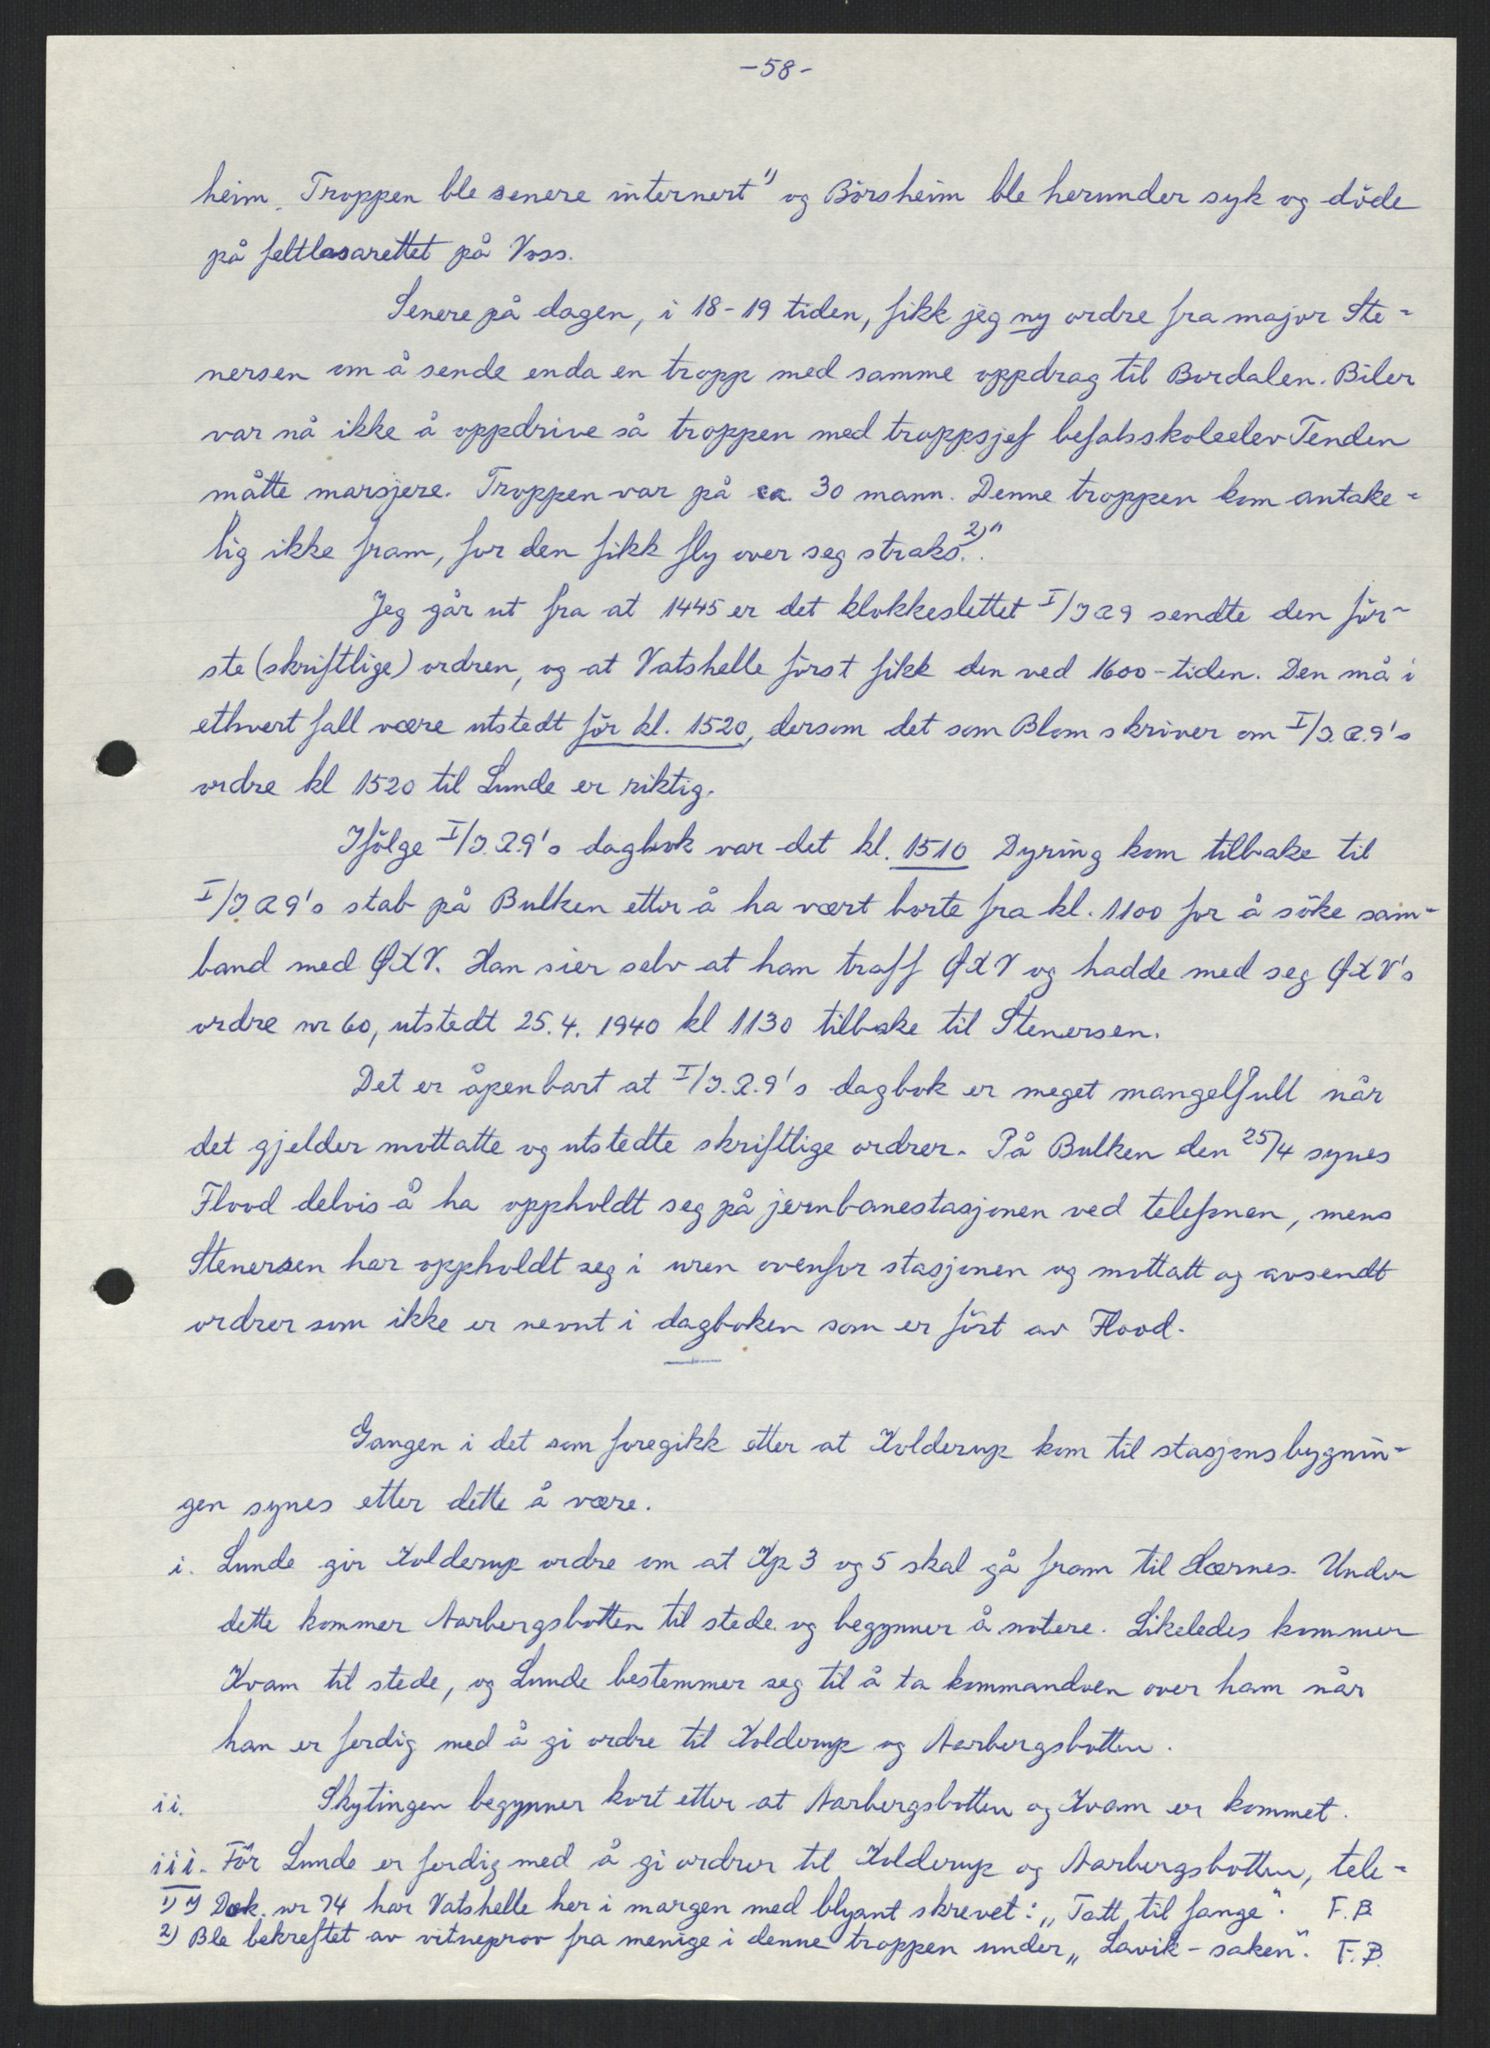 -58-
heim. Troppen ble senere internert 1) og Börsheim ble herunder syk og döde
på feltlasarettet på Voss.
Senere på dagen, i 18-19 tiden, fikk jeg ny ordre fra major Ste-
nersen om å sende enda en tropp med samme oppdrag til Bordalen. Biler
var nå ikke å oppdrive så troppen med troppsjef befalsskoleelev Tenden
måtte marsjere. Troppen var på ca. 30 mann. Denne troppen kom antake-
lig ikke fram, for den fikk fly over seg straks. 2)"
Jeg går ut fra at 1445 er det klokkeslettet I/IR9 sendte den för-
ste (skriftlige) ordren, og at Vatshelle först fikk den ved 1600-tiden. Den må i
ethvert fall være utstedt för kl. 1520, dersom det som Blom skriver om I/I.R.9's
ordre kl 1520 til Lunde er riktig.
Ifölge I/I.R.9's dagbok var det kl. 1510 Dyring kom tilbake til
I/IR9's stab på Bulken etter å ha vært borte fra kl. 1100 for å söke sam-
band med ØKV. Han sier selv at han traff ØKV og hadde med seg ØKV's
ordre nr 60, utstedt 25.4. 1940 kl 1130 tilbake til Stenersen.
Det er åpenbart at I/I.R.9's dagbok er meget mangelfull når
det gjelder mottatte og utstedte skriftlige ordrer. På Bulken den 25/4 synes
Flood delvis å ha oppholdt seg på jernbanestasjonen ved telefonen, mens
Stenersen har oppholdt seg i uren ovenfor stasjonen og mottatt og avsendt
ordrer som ikke er nevnt i dagboken som er fört av Flood.
Gangen i det som foregikk etter at Kolderup kom til stasjonsbygnin-
gen synes etter dette å være.
i. Lunde gir Kolderup ordre om at Kp 3 og 5 skal gå fram til Hærnes. Under
dette kommer Aarbergsbotten til stede og begynner å notere. Likeledes kommer
Kvam til stede, og Lunde bestemmer seg til å ta kommandoen over ham når
han er ferdig med å gi ordre til Kolderup og Aarbergsbotten.
ii. Skytingen begynner kort etter at Aarbergsbotten og Kvam er kommet.
iii. För Lunde er ferdig med å gi ordrer til Kolderup og Aarbergsbotten, tele-
1) I Dok. nr 74 har Vatshelle her i margen med blyant skrevet: „Tatt til fange". F.B
2) Ble bekreftet av vitneprov fra menige i denne troppen under „Lavik-saken". F.B.